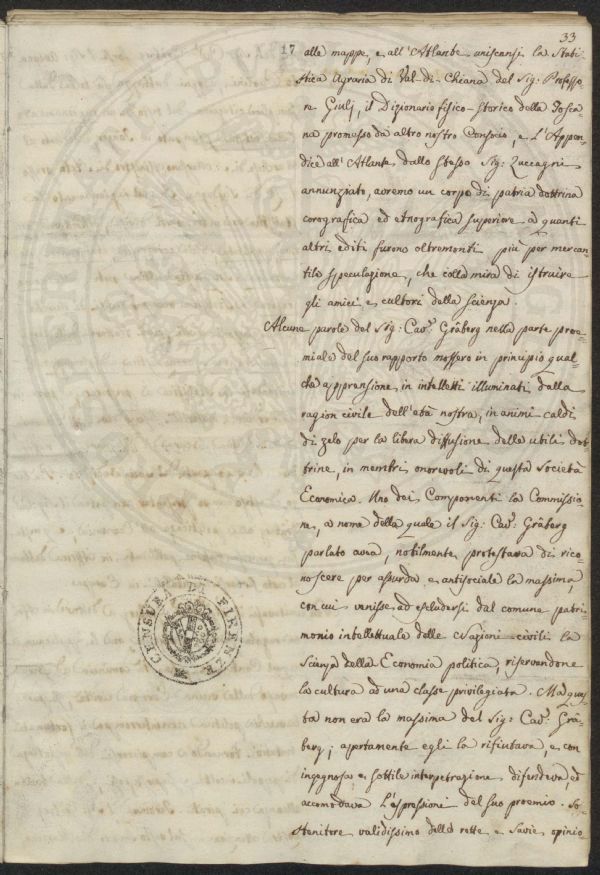 33
17
alle mappe, e all'Atlante uniscansi la Stati
stica Agraria di Val-di-Chiana del Sig: Professo
re Giulj, il Dizionario fisico-storico della Tosca=
na promesso da altro nostro Consocio, e l'Appen=
dice all'Atlante dallo stesso Sig: Zuccagni
annunziato, avremo un corpo di patria dottrina
corografica ed etnografica superiore a quanti
altri editi furono oltremonti più per mercan
tile speculazione, che colla mira di istruire
gli amici e cultori della scienza.
Alcune parole del Sig: Cav: Gråberg nella parte proe=
miale del suo rapporto mossero in principio qual=
che apprensione in intelletti illuminati dalla
ragion civile dell'età nostra, in animi caldi
di zelo per la libera diffusione delle utili dot
trine, in membri onorevoli di questa Società
Economica. Uno dei Componenti la Commissio=
ne, a nome della quale il Sig: Cav: Gråberg
parlato avea, nobilmente protestava di rico=
noscere per assurda e antisociale la massima,
con cui venisse ad escludersi dal comune patri=
monio intellettuale delle Nazioni civili la
Scienza della Economia politica, riservandone
la cultura ad una classe privilegiata. Ma ques=
ta non era la massima del Sig: Cav: Grå=
berg; apertamente egli la rifiutava, e con
ingegnosa e sottile interpetrazione difendeva, ed
accomodava l'espressioni del suo proemio. So=
stenitore validissimo delle rette e savie opinio=
CENSURA DI FIRENZE